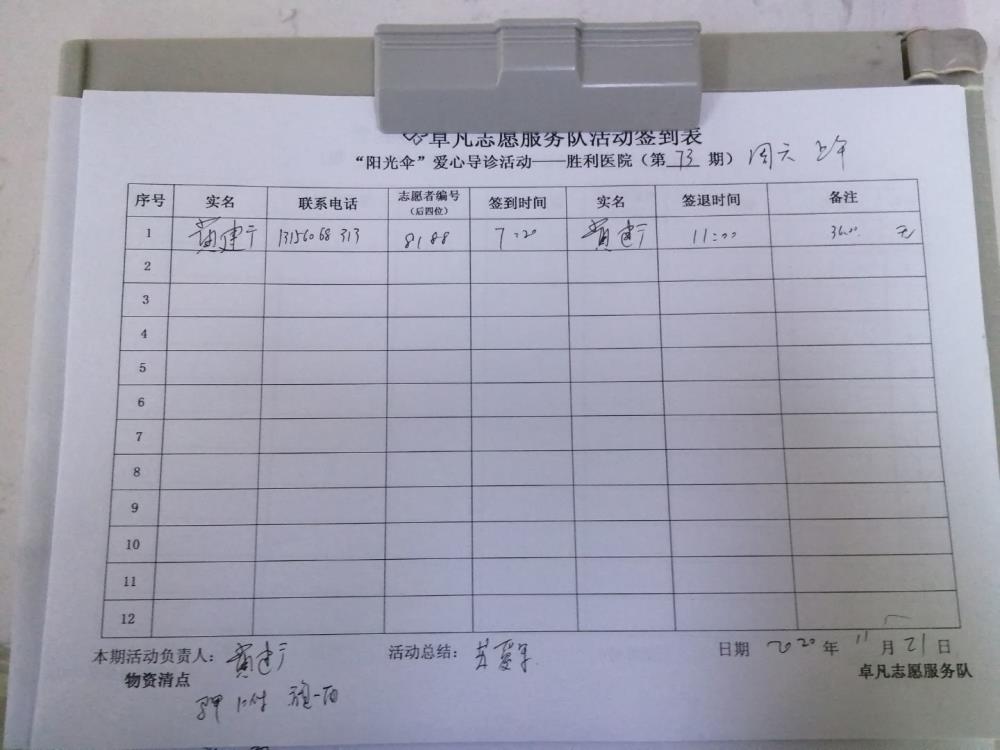 卓凡志愿服务队活动签到表
“阳光伞”爱心导诊活动——胜利医院（第 73 期） 周六 上午
序号 实名 联系电话 志愿者编号（后四位） 签到时间 实名 签退时间 备注
1 黄建宁 13156068313 8188 7:20 黄建宁 11:00
2
3
4
5
6
7
8
9
10
11
12
本期活动负责人：黄建宁 活动总结： 日期 2020 年 11 月 21 日
物资清点 卓凡志愿服务队